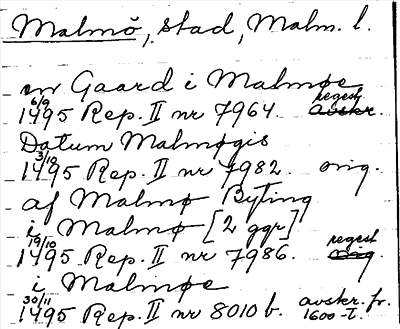 Malmö, stad, Malm. l.
en Gaard i Malmøe
6/9 regest
1495 Rep. II nr 7964 avskr.
Datum Malmøgis
3/10
1495 Rep. II nr 7982. orig.
af Malmø Byting
i Malmø [2 ggr]
19/10 regest
1495 Rep. II nr 7986. orig
i Malmøe
30/11 avskr. fr.
1495 Rep. II nr 8010 b. 1600-t.